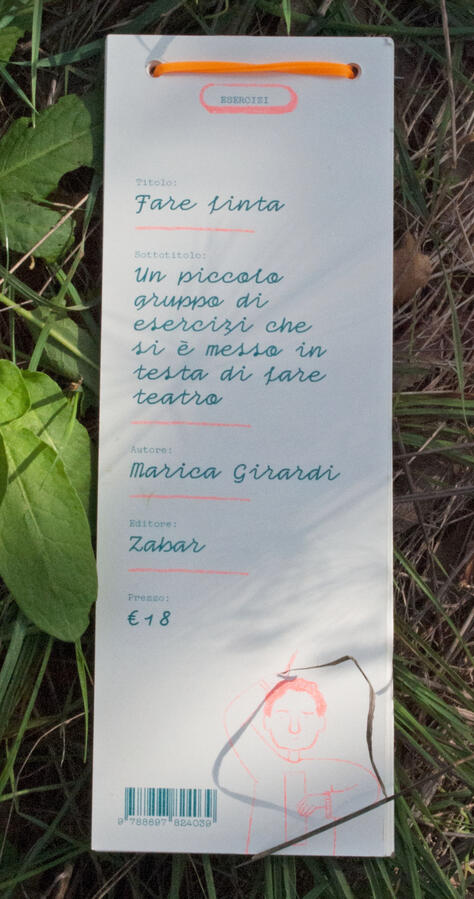 ESERCIZI
Titolo:
Fare finta
Sottotitolo:
Un piccolo
gruppo di
esercizi che
si è messo in
testa di fare
teatro
Autore:
Marica Girardi
Editore:
Zabar
Prezzo:
€18
9 788897 824039